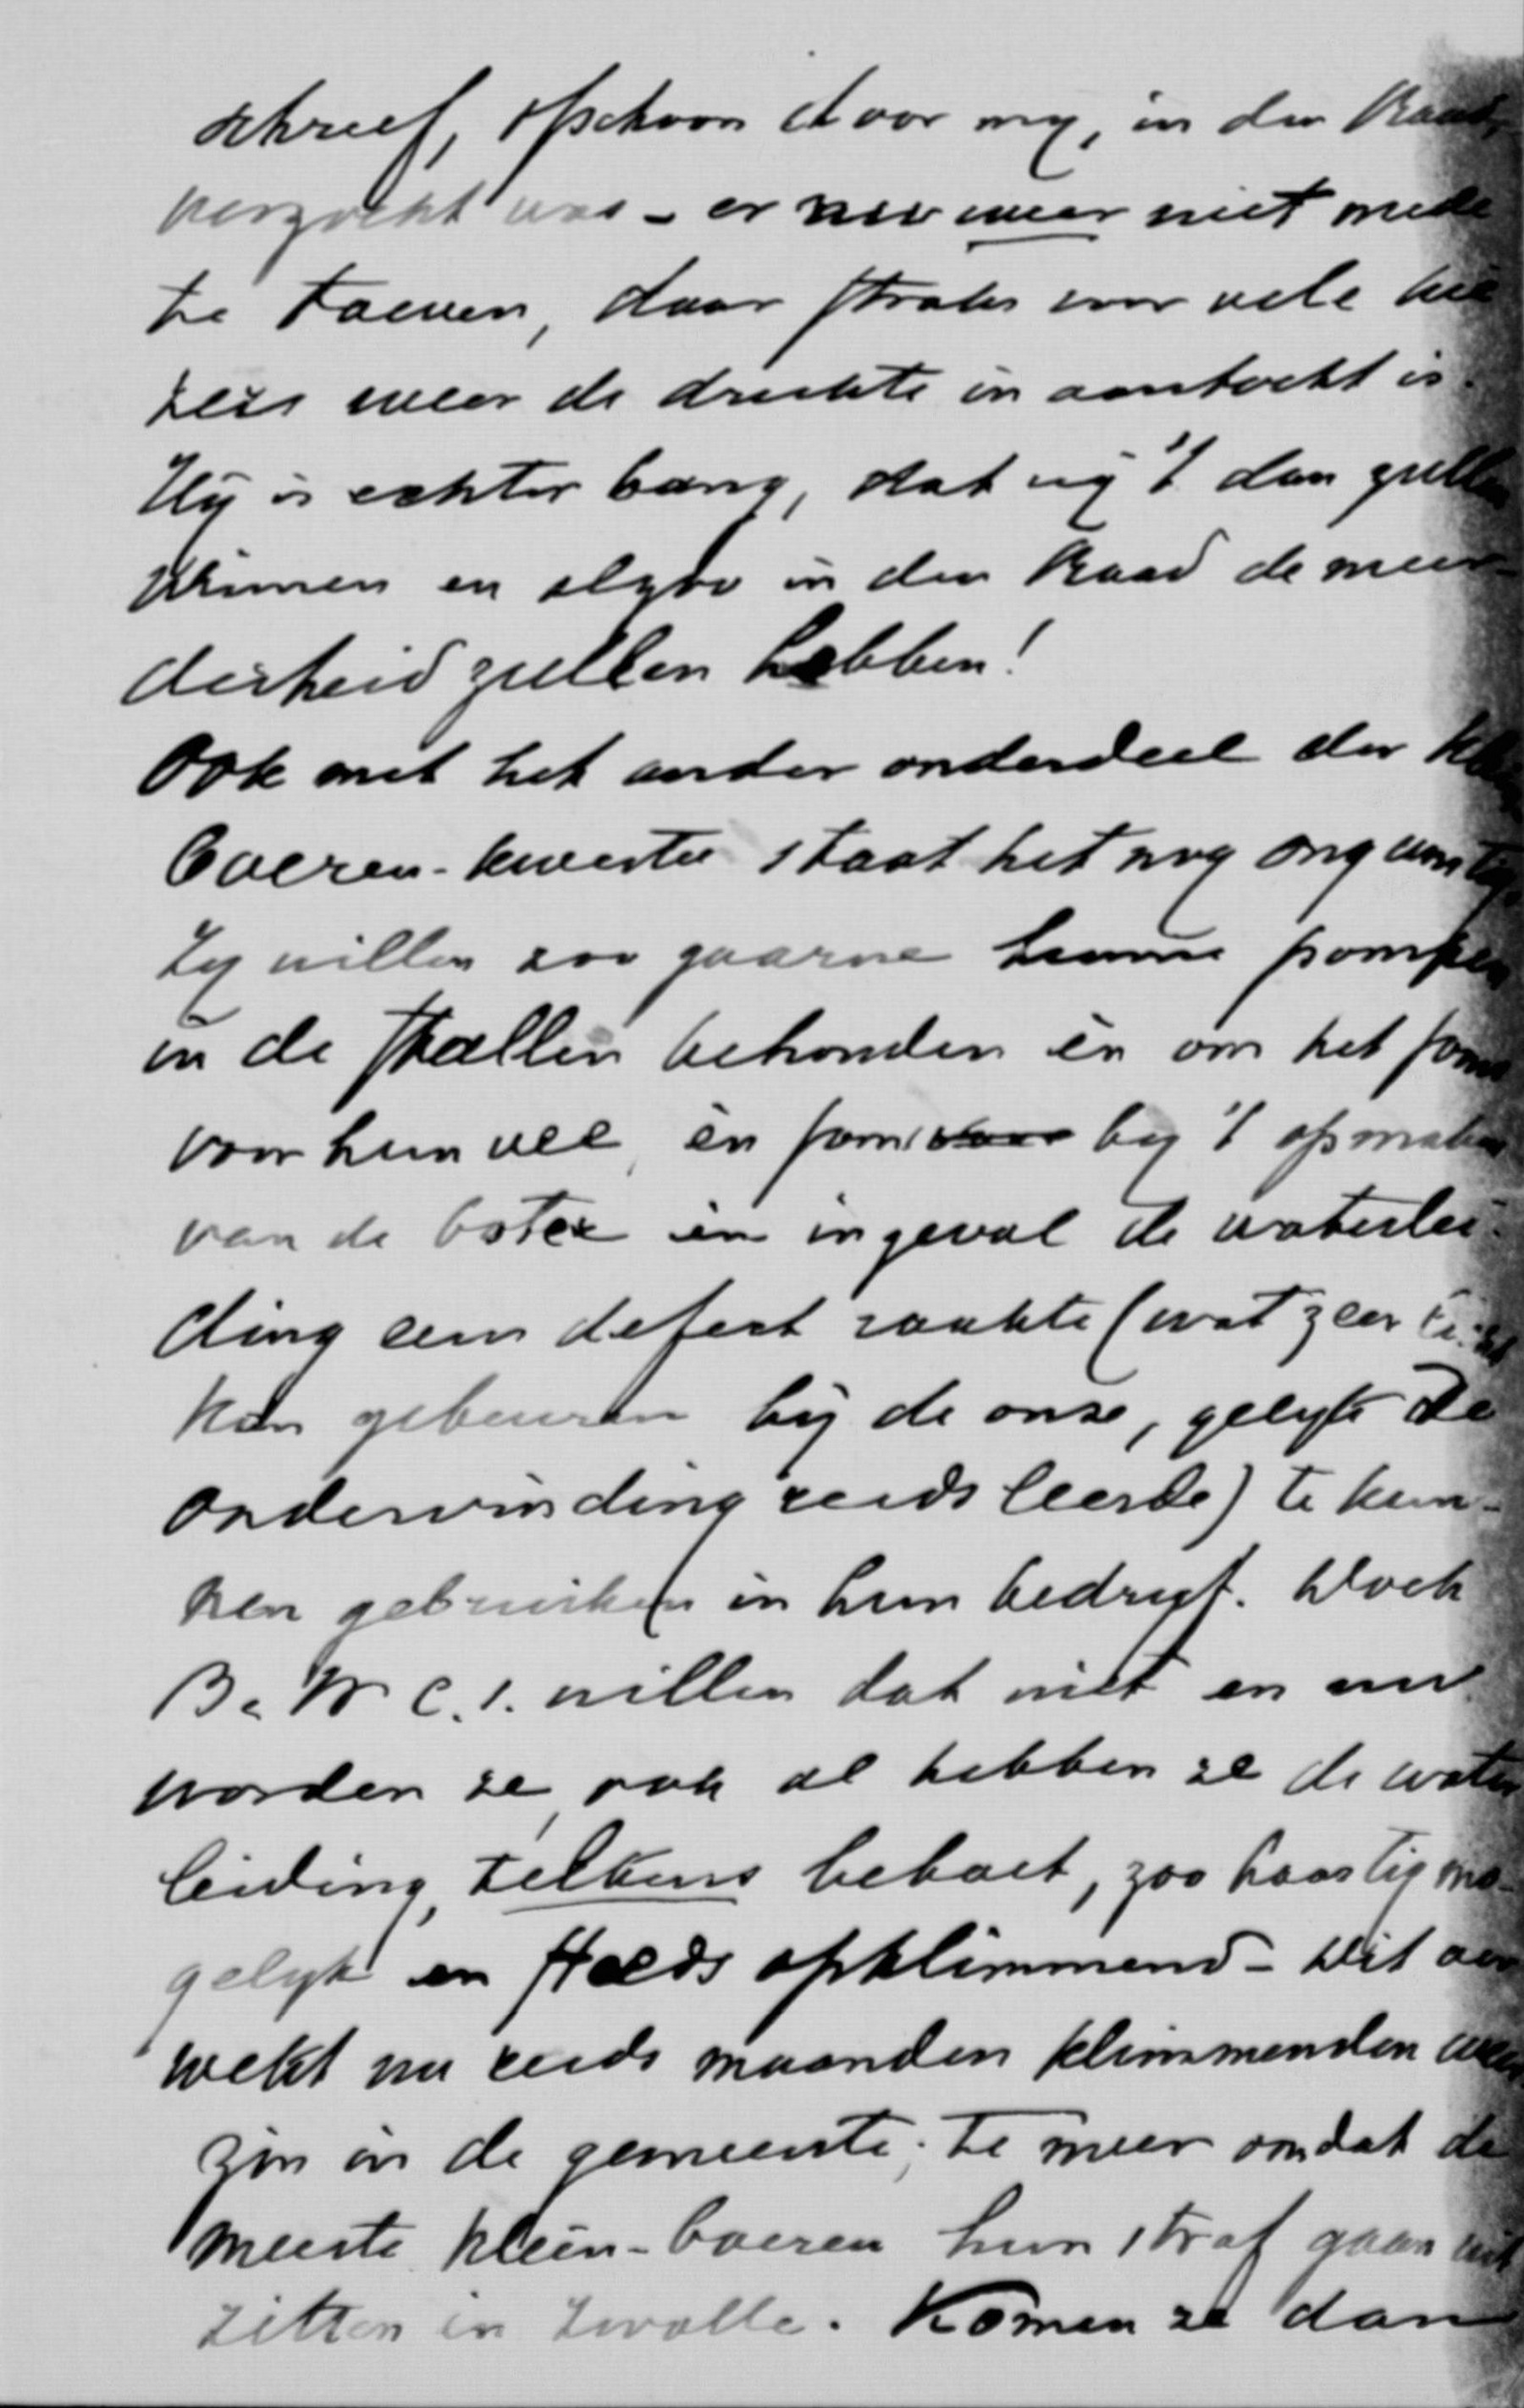 schreef, ofschoon door my, in den Raad,
verzocht was - er nu weer niet mede
te toeven, daar straks voor vele hui
zen weer de drukte in aantocht is.
Hy is echter bang, dat wy 't dan zullen
winnen en alzoo in den Raad de meer-
derheid zullen hebben!
Ook met het ander onderdeel der klein
boeren-kwestie staat het nog ongunstig.
Zy willen zoo gaarne hunne pompen
in de stallen behouden èn om het soms
voor hun vee, èn soms voor by 't opmaken
van de boter èn ingeval de waterlei-
ding eens defect raakte (wat zeer licht
kan gebeuren by de onze, gelyk de
ondervinding reeds leerde) te kun-
nen gebruiken in hun bedryf. Doch
B. & W. c.s. willen dat niet en nu
worden ze, ook al hebben ze de water
leiding, telkens beboet, zoo haastig mo-
gelyk en steeds opklimmend - Dit ver
wekt nu reeds maanden klimmenden weer
zin in de gemeente; te meer omdat de
meeste klein-boeren hun straf gaan uit
zitten in Zwolle. Komen ze dan